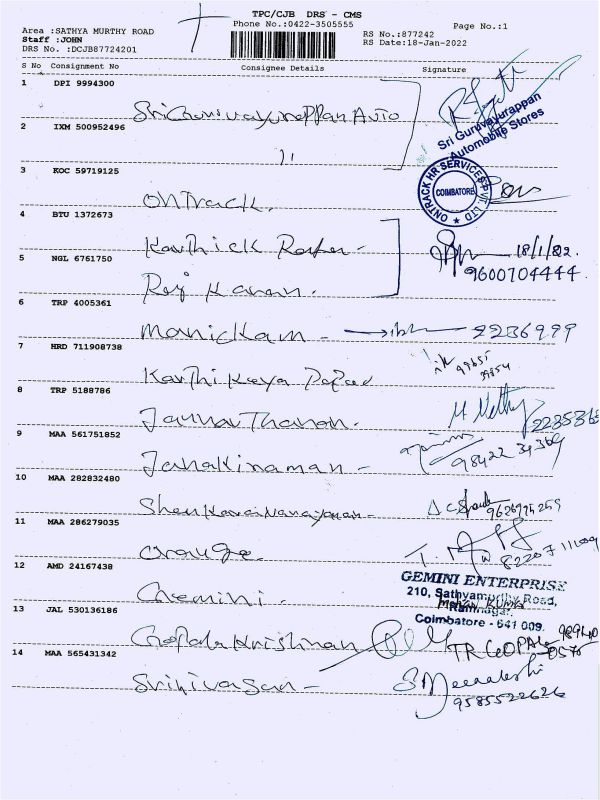 TPC/CJB DRS - CMS
Phone No.:0422-3505555
Page No.:1
Area :SATHYA MURTHY ROAD
Staff :JOHN
DRS No. :DCJB87724201
RS No.:877242
RS Date:18-Jan-2022
S No Consignment No Consignee Details Signature
1 DPI 9994300
Sri Guruvayurappan Auto
Sri Guruvayurappan
Automobile Stores
2 IXM 500952496
11
3 KOC 59719125
ONTrack.
ONTRACK HR SERVICES PVT. LTD
COIMBATORE
4 BTU 1372673
Karthick
18/1/22.
9600704444.
5 NGL 6761750
Raj
6 TRP 4005361
Manickam - 2236999
7 HRD 711908738
Karthikeya
8 TRP 5188786
9 MAA 561751852
Janakiraman -
10 MAA 282832480
11 MAA 286279035
Orange
12 AMD 24167438
Gemini.
GEMINI ENTERPRISE
210, Sathyamurthy Road,
Ramnagar,
Coimbatore - 641 009.
MOHAN KUMAR
13 JAL 530136186
Gopala Krishnan
TR GOPAL
14 MAA 565431342
Srinivasan -
9585522626